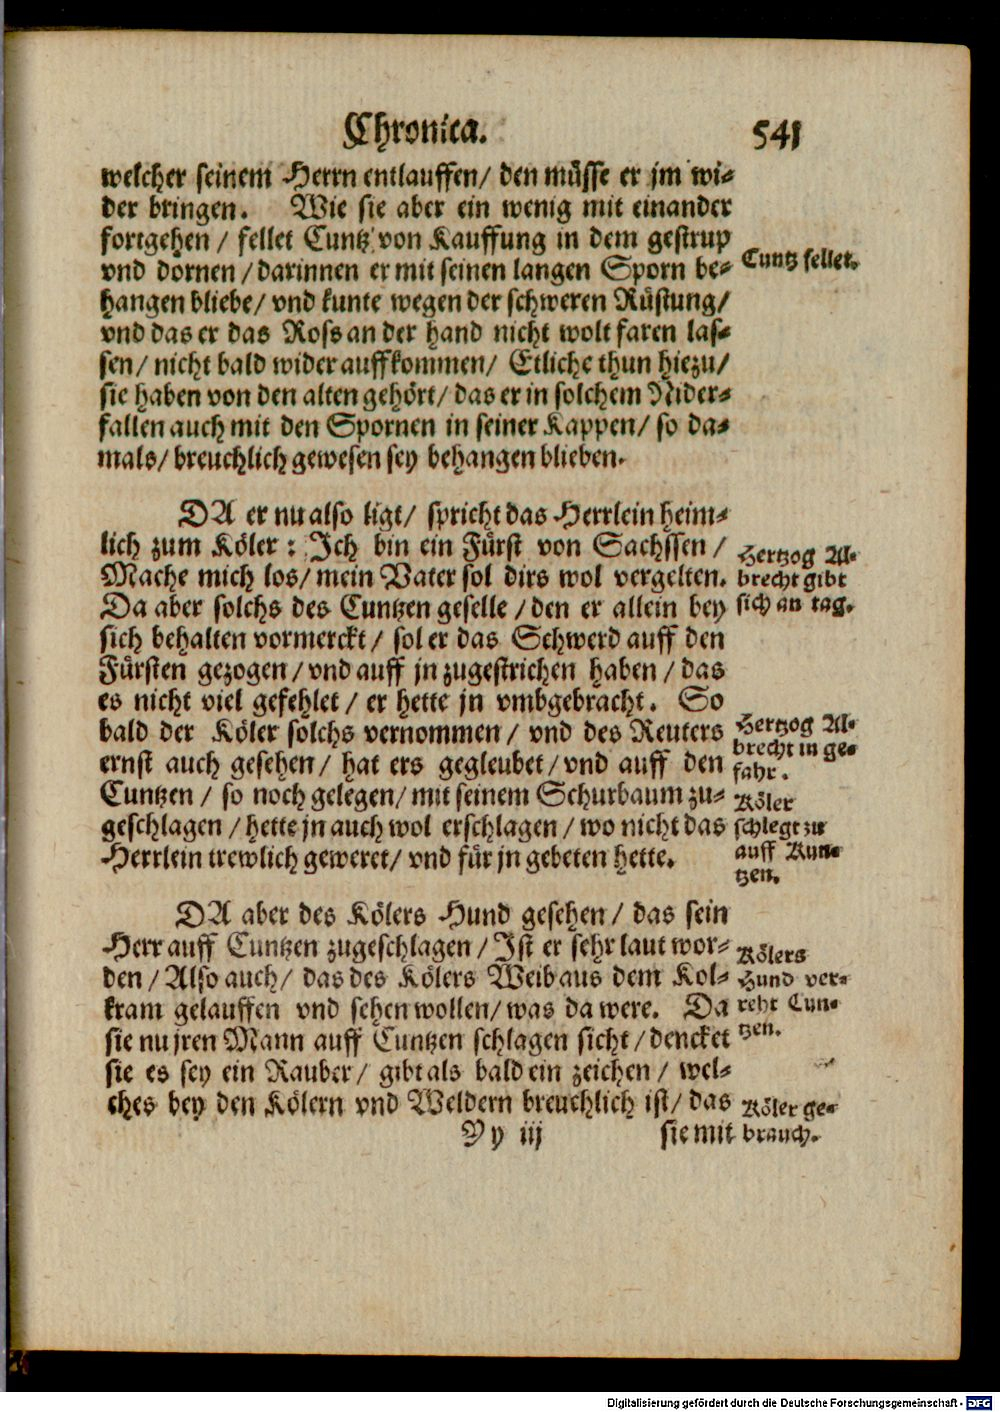 Chronica. 541
welcher seinem Herrn entlauffen/ den müsse er jm wi-
der bringen. Wie sie aber ein wenig mit einander
fortgehen / fellet Cuntz von Kauffung in dem gestrup
vnd dornen / darinnen er mit seinen langen Sporn be-
Cuntz fellet.
hangen bliebe/ vnd kunte wegen der schweren Rüstung/
vnd das er das Ross an der hand nicht wolt faren las-
sen/ nicht bald wider auffkommen/ Etliche thun hiezu/
sie haben von den alten gehört/ das er in solchem Nider-
fallen auch mit den Spornen in seiner Kappen/ so da-
mals/ breuchlich gewesen sey behangen blieben.
DA er nu also ligt/ spricht das Herrlein heim-
lich zum Köler : Ich bin ein Fürst von Sachssen /
Mache mich los/ mein Vater sol dirs wol vergelten.
Da aber solchs des Cuntzen geselle / den er allein bey
Hertzog Al-
brecht gibt
sich an tag.
sich behalten vormerckt/ sol er das Schwerd auff den
Fürsten gezogen / vnd auff jn zugestrichen haben / das
es nicht viel gefehlet / er hette jn vmbgebracht. So
bald der Köler solchs vernommen / vnd des Reuters
ernst auch gesehen/ hat ers gegleubet/ vnd auff den
Hertzog Al-
brecht in ge-
fahr.
Cuntzen / so noch gelegen/ mit seinem Schurbaum zu-
geschlagen / hette jn auch wol erschlagen / wo nicht das
Herrlein trewlich geweret/ vnd für jn gebeten hette.
Köler
schlegt zu
auff Kun-
tzen.
DA aber des Kölers Hund gesehen / das sein
Herr auff Cuntzen zugeschlagen / Ist er sehr laut wor-
den / Also auch/ das des Kölers Weib aus dem Kol-
kram gelauffen vnd sehen wollen/ was da were. Da
sie nu jren Mann auff Cuntzen schlagen sicht / dencket
Kölers
Hund ver-
reht Cun-
tzen.
sie es sey ein Rauber/ gibt als bald ein zeichen / wel-
ches bey den Kölern vnd Weldern breuchlich ist/ das
Köler ge-
brauch.
Yy iij sie mit
Digitalisierung gefördert durch die Deutsche Forschungsgemeinschaft - DFG